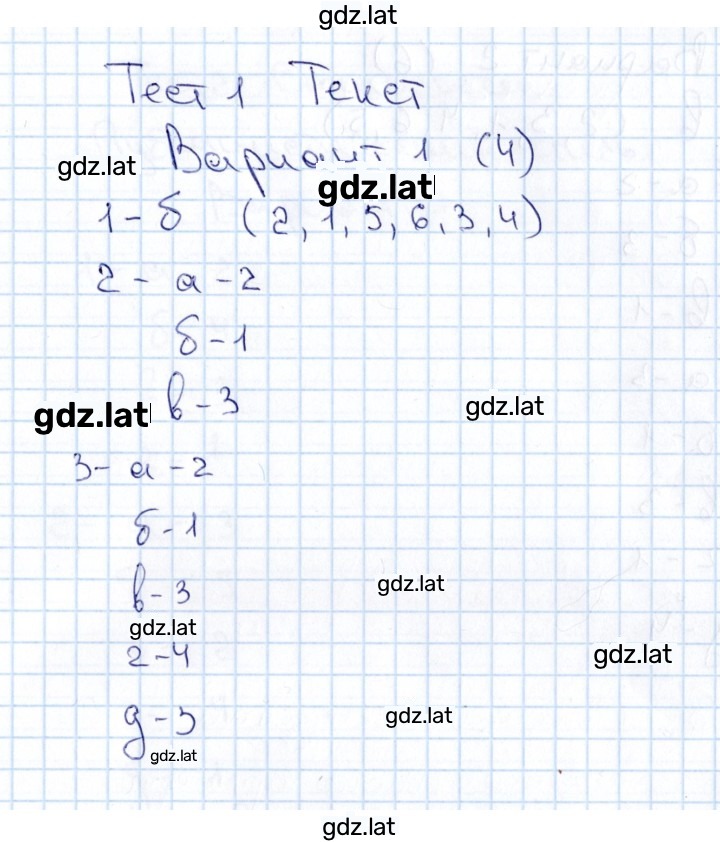 gdz.lat
Тест 1 Текст
gdz.lat
Вариант 1 (4)
gdz.lat
1 - б (2, 1, 5, 6, 3, 4)
2 - а - 2
б - 1
gdz.lat
в - 3
gdz.lat
3 - а - 2
б - 1
gdz.lat
в - 3
gdz.lat
г - 4
gdz.lat
д - 3
gdz.lat
gdz.lat
gdz.lat